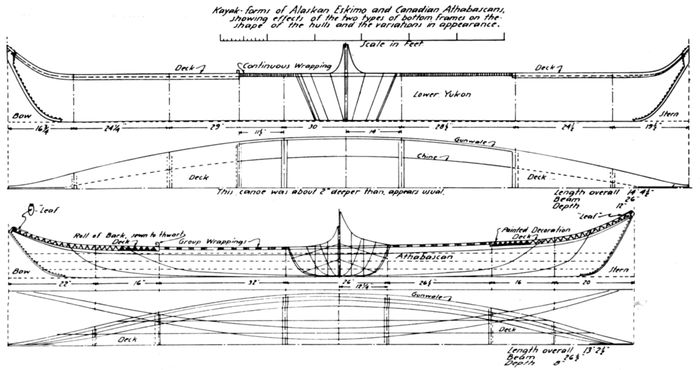 Kayak-forms of Alaskan Eskimo and Canadian Athabascans,
showing effects of the two types of bottom frames on the
shape of the hulls and the variations in appearance.
Scale in Feet
Deck
Continuous Wrapping
Deck
Lower Yukon
Bow
Stern
16¾" 24¼" 29" 30 28½" 24½" 19½"
11½" 14"
Gunwale
Chine
Deck
Deck
This canoe was about 2" deeper than appears usual.
Length overall 14' 4½"
Beam 26"
Depth 12"
Leaf
Leaf
Roll of Bark, sewn to thwarts
Deck
Group Wrappings
Painted Decoration
Deck
Athabascan
Bow
Stern
22" 16" 32" 26 26½" 16 20
Gunwale
Deck
Deck
Length overall 13' 2½"
Beam
Depth